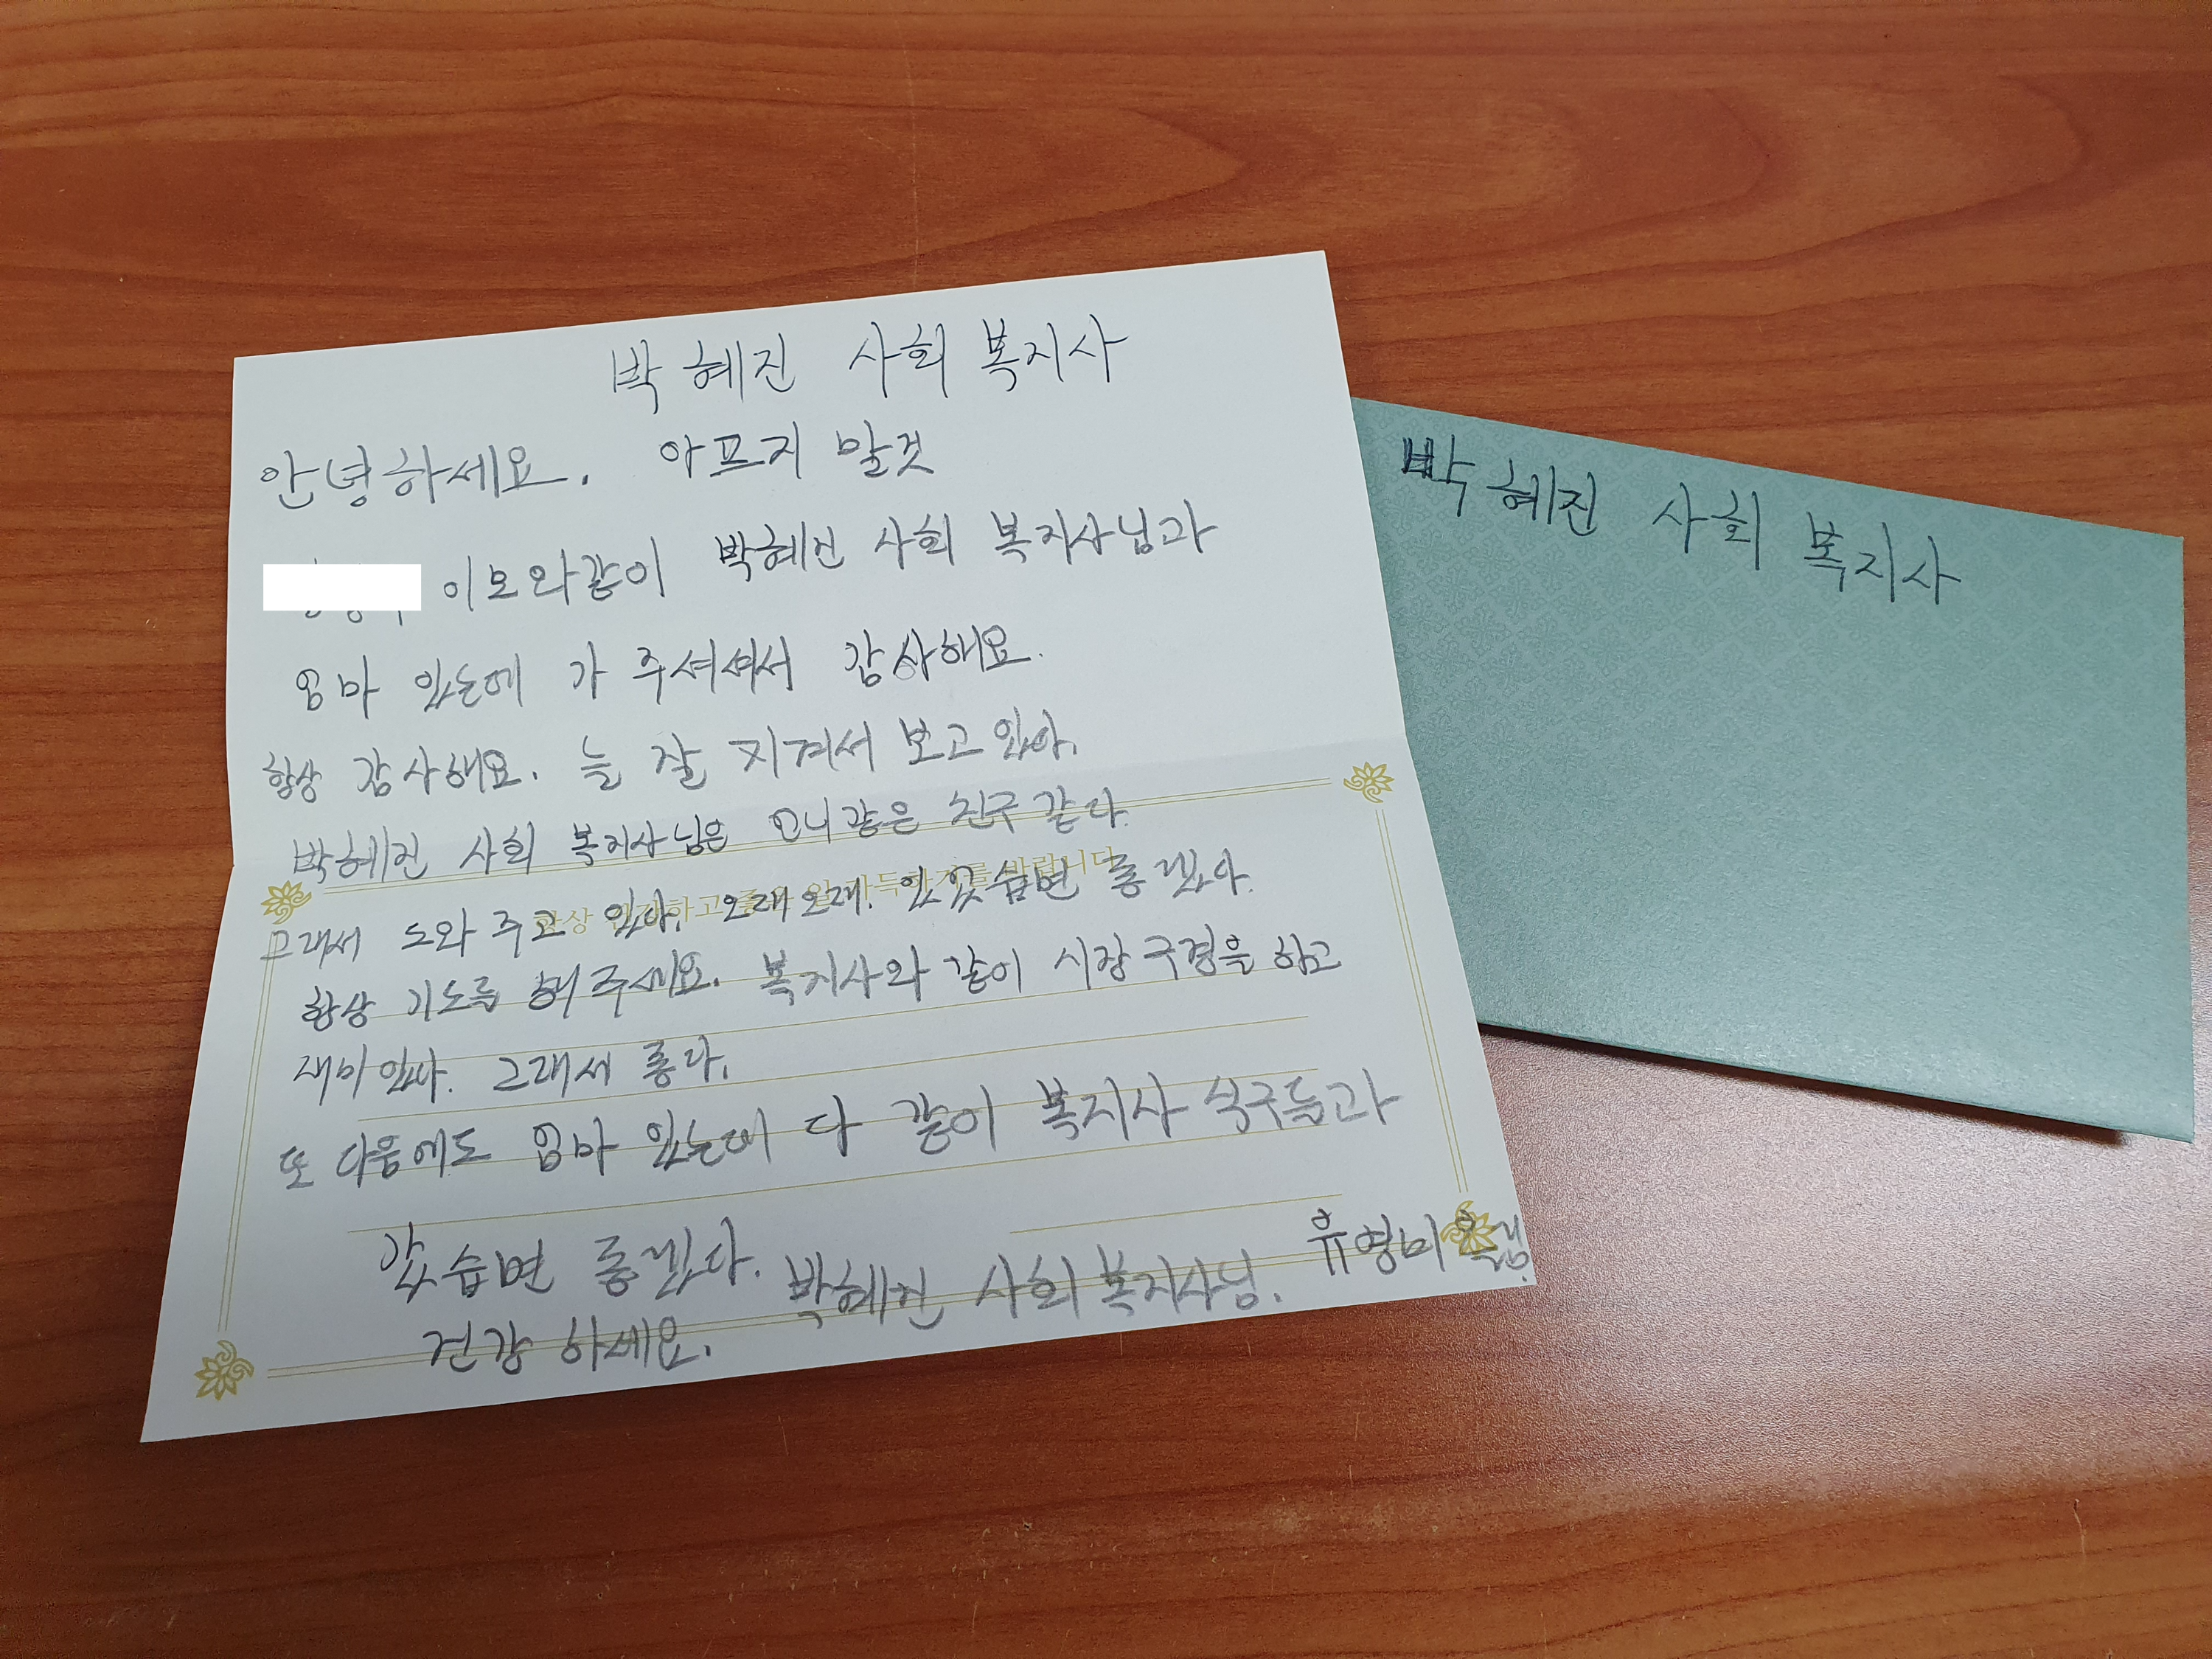 박혜진 사회 복지사
안녕하세요. 아프지 말것
이모와같이 박혜진 사회 복지사님과
엄마 있는에 가 주셔셔서 감사해요.
항상 감사해요. 늘 잘 지켜서 보고있다.
박혜진 사회 복지사님은 언니같은 친구 같다.
그래서 도와 주고 있다. 오래오래. 있었습면 좋겠다.
항상 기도를 해주세요. 복지사와 같이 시장 구경을 하고
재미있다. 그래서 좋다.
또 다음에도 엄마 있는데 다 같이 복지사 식구들과
갔습면 좋겠다. 박혜진 사회복지사님. 유영미
건강 하세요.
박혜진 사회 복지사